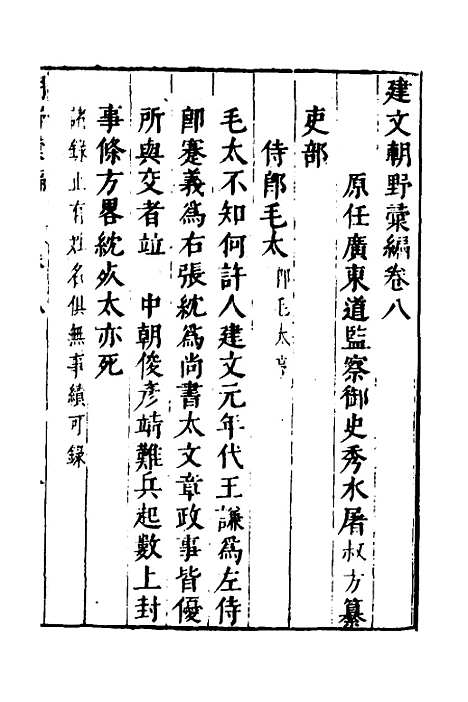 建文朝野彙編卷八
原任廣東道監察御史秀水屠叔方纂
吏部
侍郎毛太 即毛太亨
毛太不知何許人建文元年代王謙爲左侍
郎蹇義爲右張紞爲尚書太文章政事皆優
所與交者竝 中朝俊彥靖難兵起數上封
事條方畧紞死太亦死
諸錄止有姓名俱無事績可錄